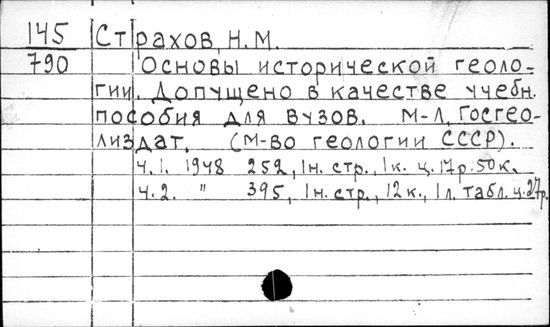 145 Страхов, Н.М.
790 Основы исторической геоло-
гии. Допущено в качестве учебн.
пособия для вузов. М-Л, Госгео-
лиздат. (М-во геологии СССР).
ч.1. 1948 252, 1н. стр., 1к. ц. 17р. 50к.
ч.2. " 395, 1н. стр., 12к., 1л. табл. ц. 27р.